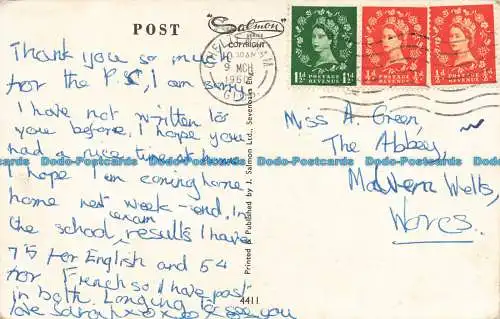 POST
"Salmon"
SERIES
COPYRIGHT
Thank you so much
for the P.S, I am sorry
I have not written to
you before, I hope you
had a nice time at home
I hope I am coming home
home next week-end, in
the school exam results I have
75 for English and 54
for French so I have past
in both. Longing to see you
love Sarah xoxoxo
Printed & Published by J. Salmon Ltd., Sevenoaks
4411
10 30 AM
9 MCH
196
POSTAGE REVENUE
1½d 1½d
POSTAGE REVENUE
½d ½d
POSTAGE REVENUE
½d ½d
Miss A. Green,
The Abbey,
Malvern Wells,
Worcs.
Dodo-Postcards Dodo-Postcards Dodo-Postcards Dodo-Postcards